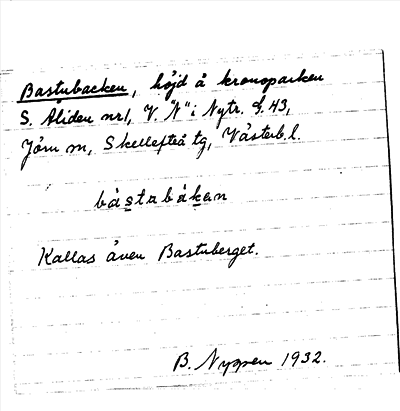 Bastubacken, höjd å kronoparken
S. Åliden nr 1, V. "N" i Nytr. G. 43,
Jörn sn, Skellefteå tg, Västerb. l.
bàstabákan
Kallas även Bastuberget.
B. Nygren 1932.